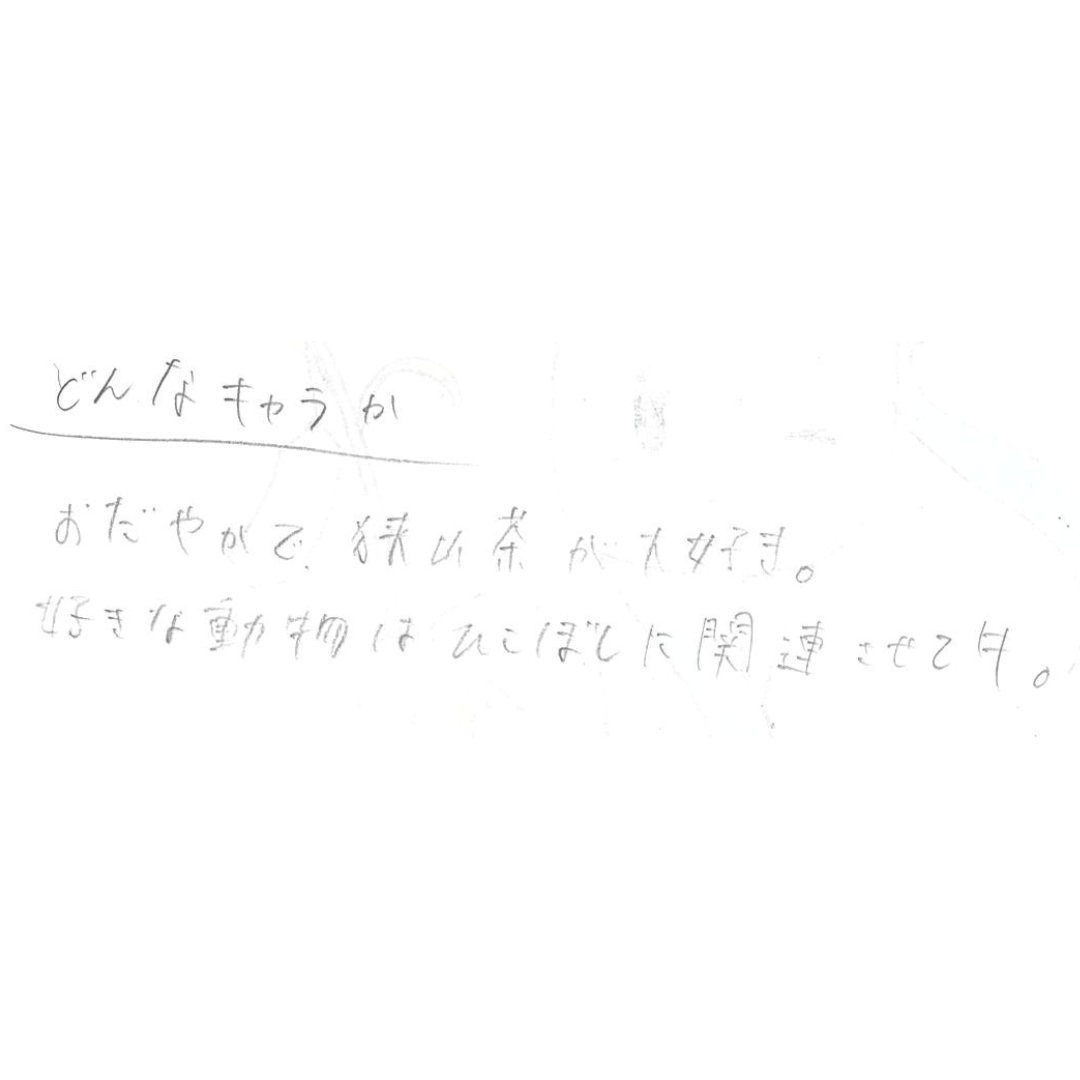 どんなキャラか
おだやかで、狭山茶が大好き。
好きな動物はひこぼしに関連させて牛。